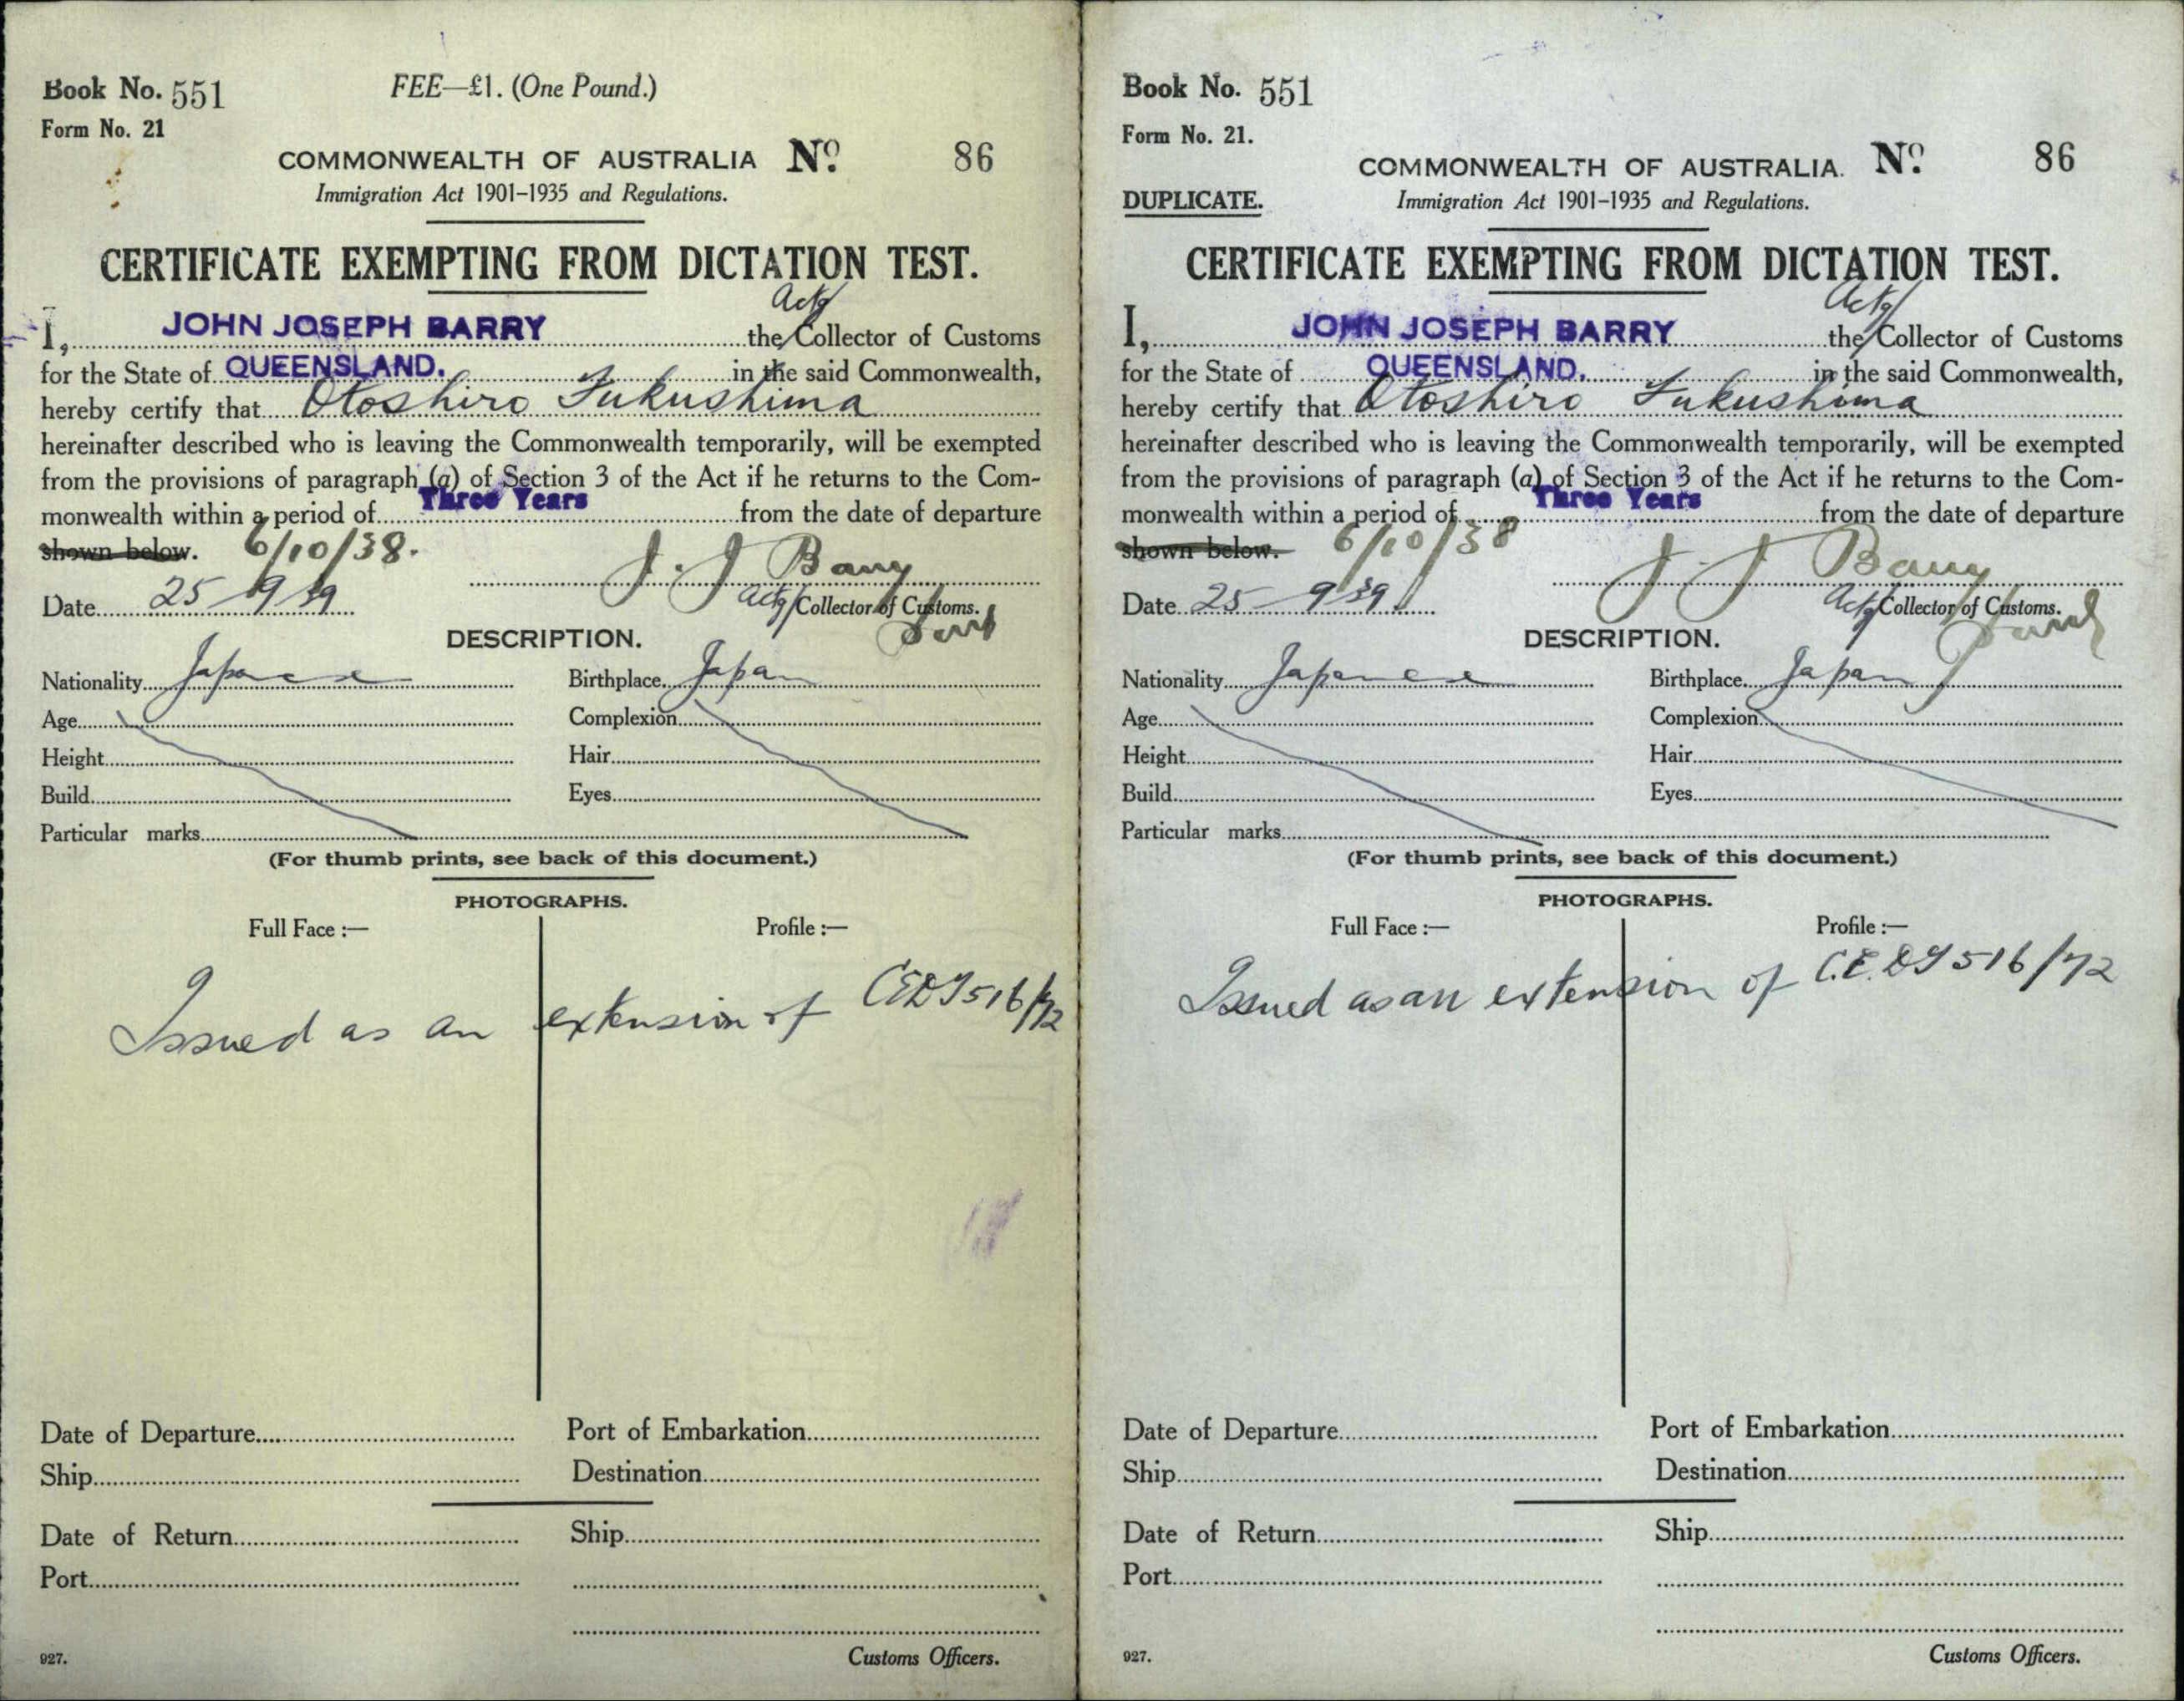 Book No. 551
FEE—£1. (One Pound.)
Form No. 21
COMMONWEALTH OF AUSTRALIA No. 86
Immigration Act 1901–1935 and Regulations.
CERTIFICATE EXEMPTING FROM DICTATION TEST.
Actg
I, JOHN JOSEPH BARRY the Collector of Customs
for the State of QUEENSLAND. in the said Commonwealth,
hereby certify that Otoshiro Fukushima
hereinafter described who is leaving the Commonwealth temporarily, will be exempted
from the provisions of paragraph (a) of Section 3 of the Act if he returns to the Com-
monwealth within a period of Three Years from the date of departure
shown below. 6/10/38.
J. J Barry
Date 25 9 39
Actg Collector of Customs.
DESCRIPTION.
Nationality Japanese Birthplace Japan
Age Complexion
Height Hair
Build Eyes
Particular marks
(For thumb prints, see back of this document.)
PHOTOGRAPHS.
Full Face :— Profile :—
Issued as an extension of CEDT516/72
Date of Departure Port of Embarkation
Ship Destination
Date of Return Ship
Port
927. Customs Officers.
Book No. 551
Form No. 21.
COMMONWEALTH OF AUSTRALIA. No. 86
DUPLICATE. Immigration Act 1901–1935 and Regulations.
CERTIFICATE EXEMPTING FROM DICTATION TEST.
Actg
I, JOHN JOSEPH BARRY the Collector of Customs
for the State of QUEENSLAND. in the said Commonwealth,
hereby certify that Otoshiro Fukushima
hereinafter described who is leaving the Commonwealth temporarily, will be exempted
from the provisions of paragraph (a) of Section 3 of the Act if he returns to the Com-
monwealth within a period of Three Years from the date of departure
shown below. 6/10/38
J J Barry
Date 25 9 39
Actg Collector of Customs.
DESCRIPTION.
Nationality Japanese Birthplace Japan
Age Complexion
Height Hair
Build Eyes
Particular marks
(For thumb prints, see back of this document.)
PHOTOGRAPHS.
Full Face :— Profile :—
Issued as an extension of C.E.DT516/72
Date of Departure Port of Embarkation
Ship Destination
Date of Return Ship
Port
927. Customs Officers.